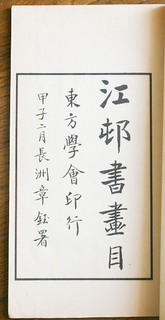 江邨書畫目
東方學會印行
甲子二月長洲章鈺署